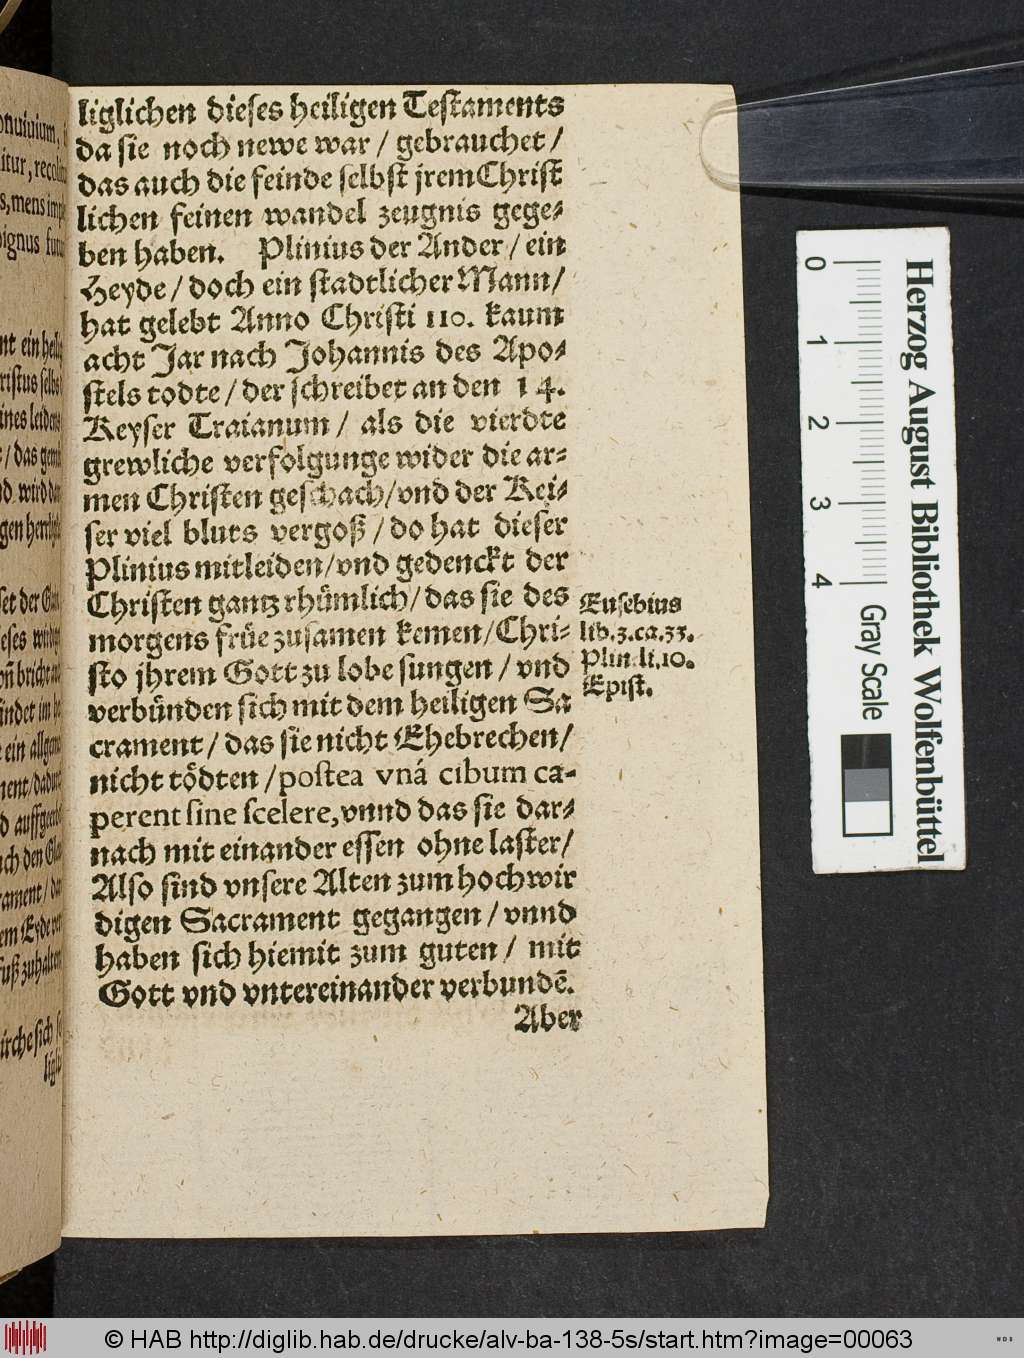 liglichen dieses heiligen Testaments
da sie noch newe war / gebrauchet /
das auch die feinde selbst jrem Christ
lichen feinen wandel zeugnis gege⸗
ben haben. Plinius der Ander / ein
Heyde / doch ein stadtlicher Mann /
hat gelebt Anno Christi 110. kaum
acht Jar nach Johannis des Apo⸗
stels todte / der schreibet an den 14.
Keyser Traianum / als die vierdte
grewliche verfolgunge wider die ar⸗
men Christen geschach / vnd der Kei⸗
ser viel bluts vergoß / do hat dieser
Plinius mitleiden / vnd gedenckt der
Christen gantz rhümlich / das sie des
morgens früe zusamen kemen / Chri⸗
sto jhrem Gott zu lobe sungen / vnd
verbünden sich mit dem heiligen Sa
crament / das sie nicht Ehebrechen /
nicht tödten / postea vná cibum ca-
perent sine scelere, vnnd das sie dar⸗
nach mit einander essen ohne laster /
Also sind vnsere Alten zum hochwir
digen Sacrament gegangen / vnnd
haben sich hiemit zum guten / mit
Gott vnd vntereinander verbundē.
Aber
Eusebius
lib. 3. ca. 33.
Plin. li. 10.
Epist.
onuiuium,
itur, recoli
s, mens imp
ignus futu
nt ein heil
ristus selbs
ines leidens
/ das gem
d wird da
gen herrlig
set der Gla
ieses wird
oñ bricht
ündet im
ein allgem
ment / dadurch
d auffgeo
ch den Gla
rament / da
em Eyde ver
fuß zuhalten
irche sich se
ligli
0 1 2 3 4
Gray Scale
Herzog August Bibliothek Wolfenbüttel
© HAB http://diglib.hab.de/drucke/alv-ba-138-5s/start.htm?image=00063
WDB